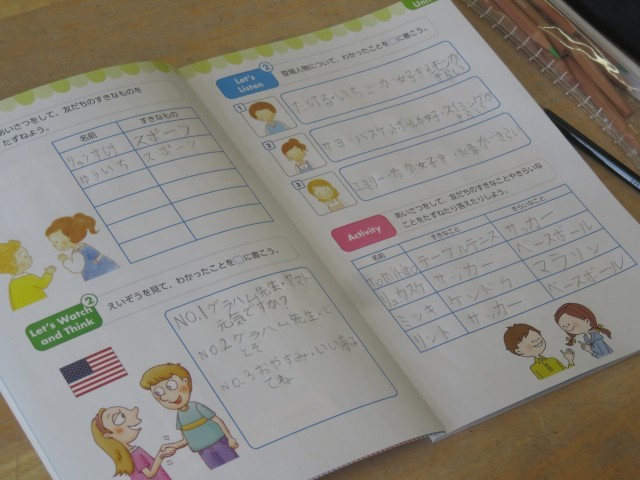 あいさつをして、友だちのすきなものを
たずねよう。
名前 すきなもの
りゅうすけ スポーツ
ゆういち スポーツ
Let's Watch and Think 2
えいぞうを見て、わかったことを□に書こう。
NO.1 グラハム先生・ヤマト
元気ですか?
NO.2 グラハム先生・
NO.3 おやすみ・いい夢
てね
Unit
Let's Listen 2
登場人物について、わかったことを□に書こう。
1 たける・いちごが好き
2 サヨ・バスケ
3 エミリー
Activity
あいさつをして、友だちのすきなことやきらいな
ことをたずねたり答えたりしよう。
名前 すきなこと きらいなこと
Tomihiro テーブルテニス サッカー
リュウスケ サッカー ベースボール
ミツキ ケンドウ マラソン
リント サッカー ベースボール